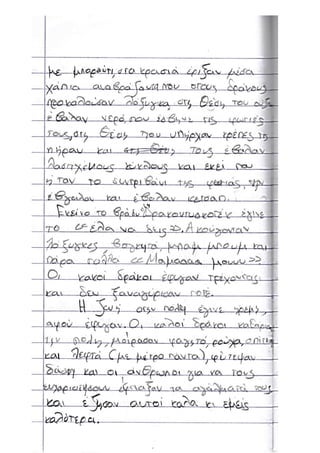 με μπαρούτι, στα κρασιά έριξαν μέσα
χάπια που στους δράκους
προκαλούσαν λόξυγκα, στη θέση του
έβαλαν νερό, που έσβηνε τις φωτιές
τους, στη θέση που υπήρχαν τρύπες τη
πήραν και στη θέση τους έβαλαν
κύκλους και εκεί που
ήταν το συντριβάνι της φωτιάς, την
έβγαλαν και έβαλαν κέτσαπ.
Εκείνο το βράδυ έγινε
το <<έλα να δεις>>. Ακούγονταν
λόξυγκες, βογκητά, μπαμ μπουμ και
πάρα πολλά <<Μαμααα μουυ>>
Οι κακοί δράκοι έφυγαν τρέχοντας
και δεν ξαναγύρισαν ποτέ.
Η ζωή στην πόλη έγινε
αφού έφυγαν. Οι καλοί δράκοι
την πόλη, μοίρασαν φαγητό, ρούχα, σπίτια
και λεφτά (με μέτρο πάντα), φύτεψαν
δάση και οι άνθρωποι για να τους
ευχαριστήσουν έφτιαξαν τα αγάλματά τους
και έζησαν αυτοί καλά κι εμείς
καλύτερα.